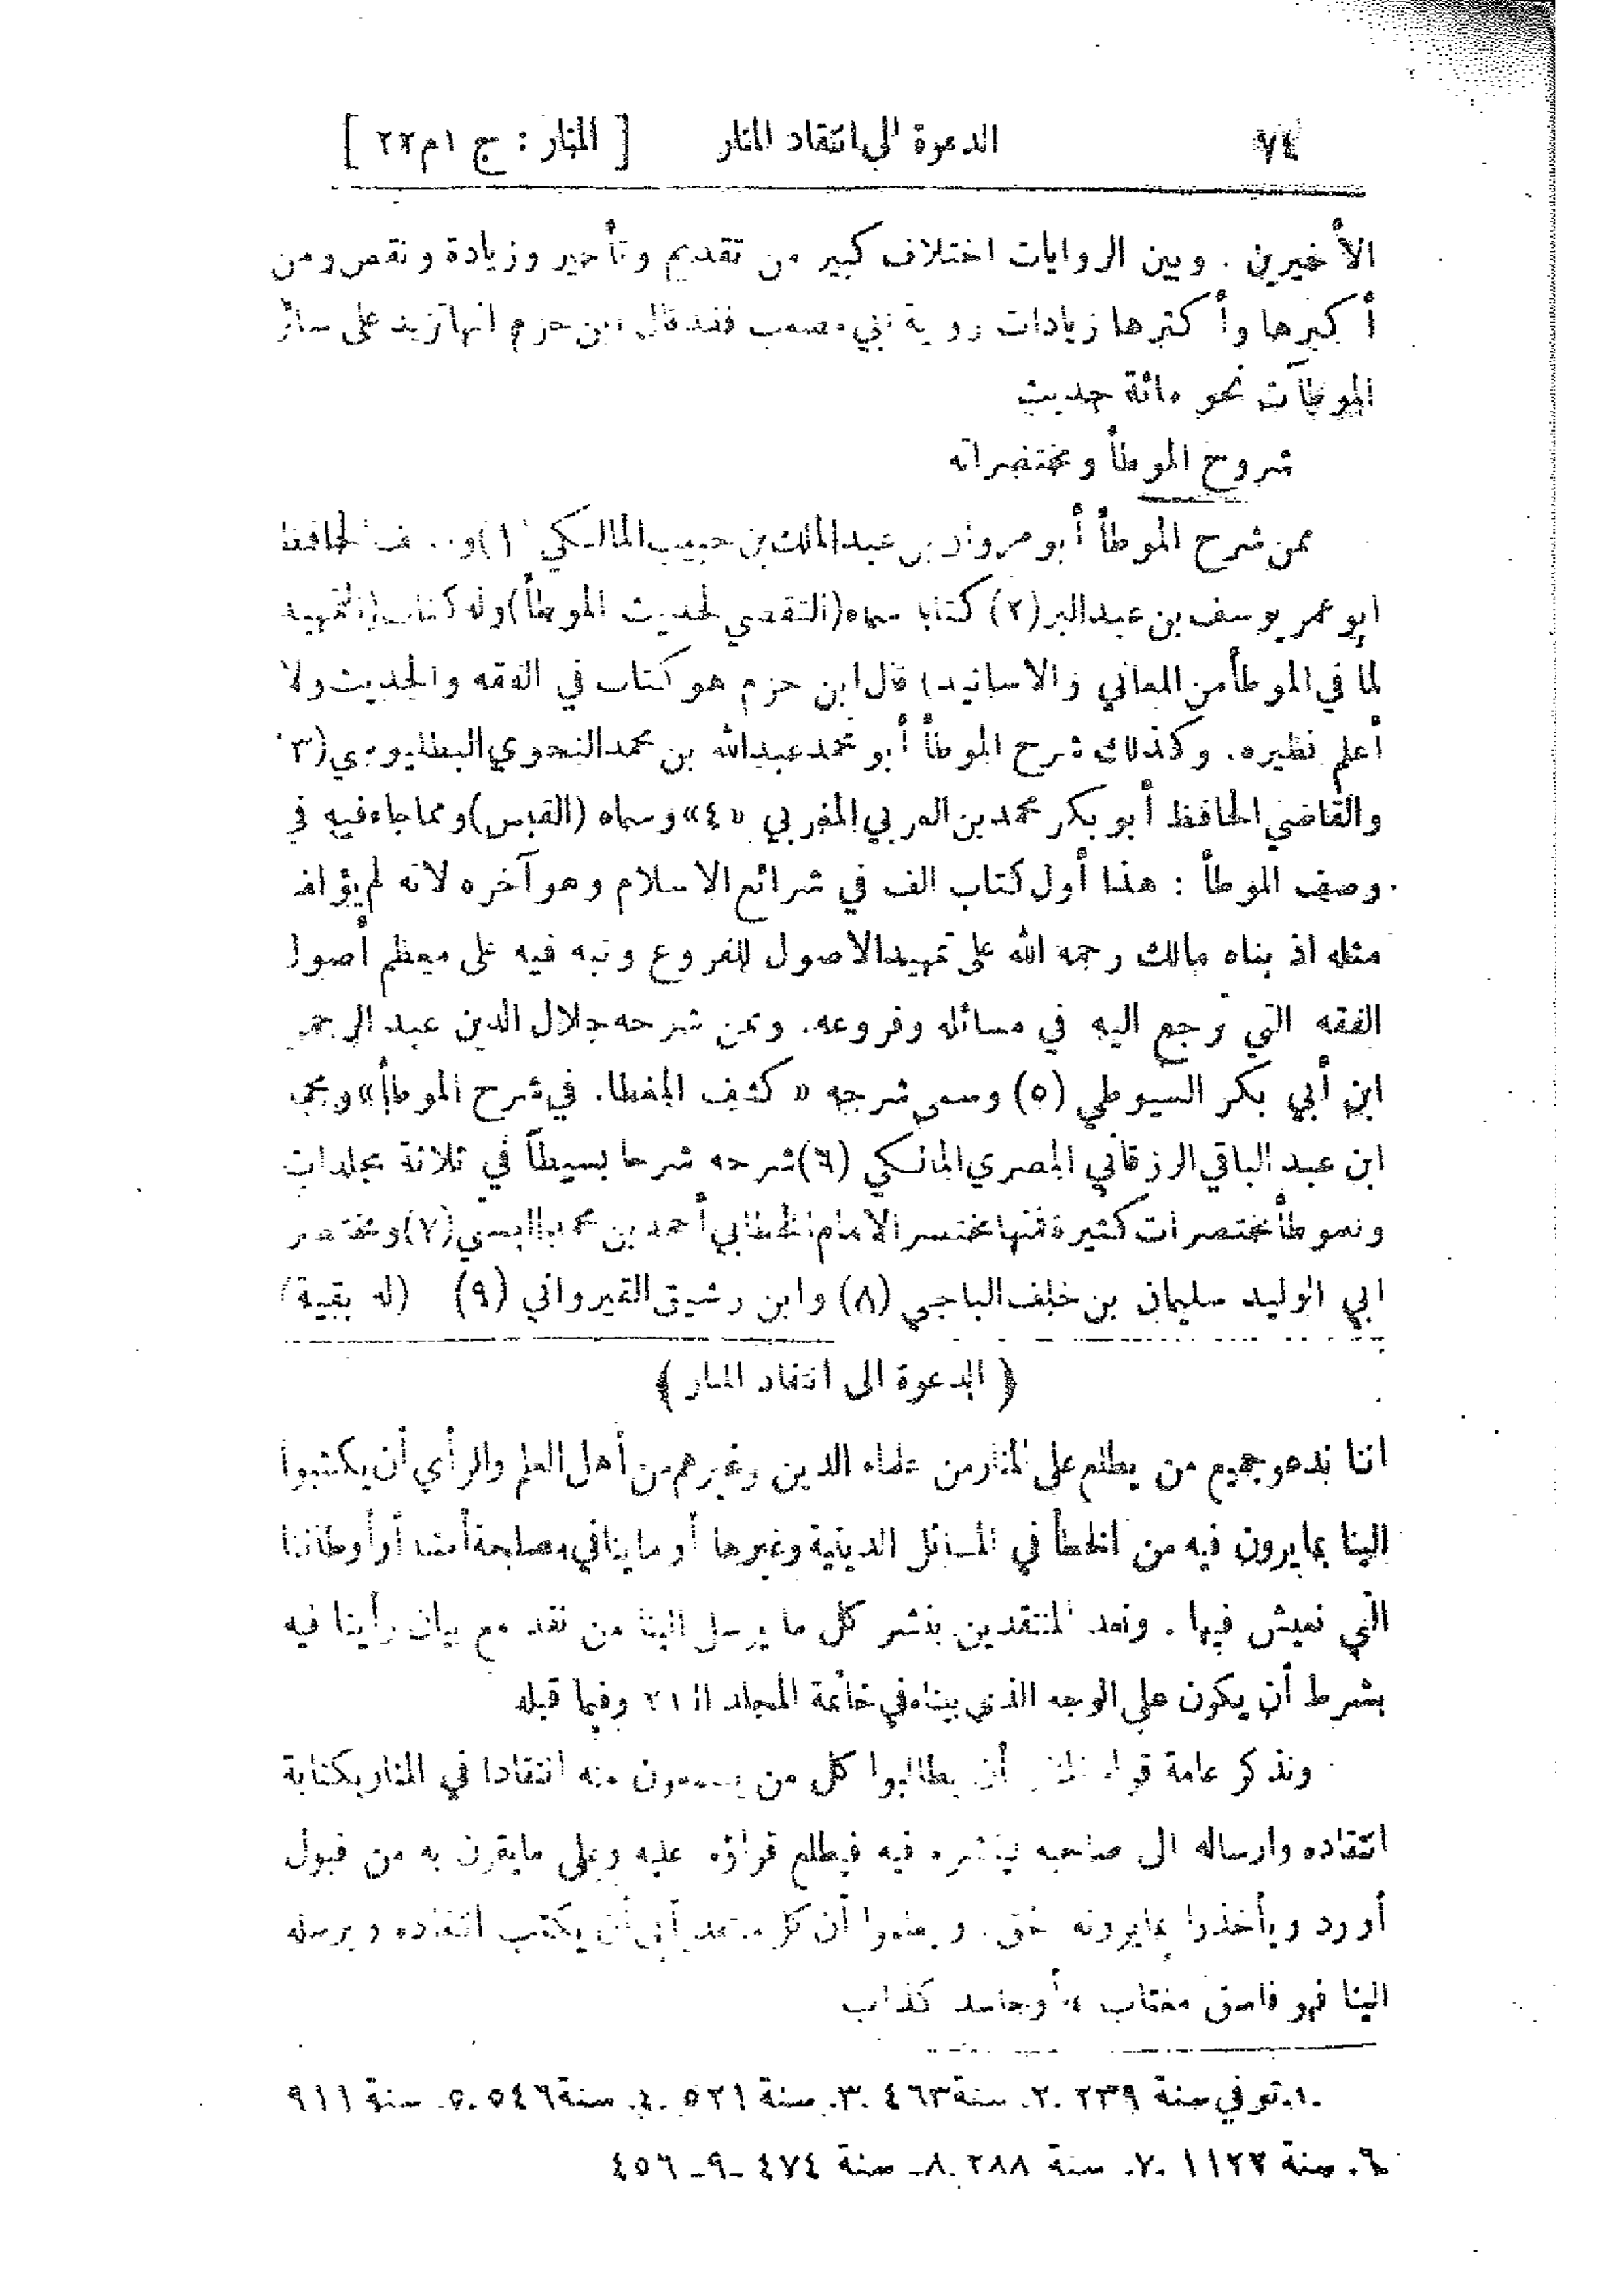 ٧٤ الدعوة الى انتقاد المنار [ المنار : ج ١ م ٢٢ ]
الأخيرين . وبين الروايات اختلاف كبير من تقديم وتأخير وزيادة ونقص ومن
أكبرها وأكثرها زيادات رواية أبي مصعب فقد قال ابن حزم انها تزيد على سائر
الموطآت نحو مائة حديث
شروح الموطأ ومختصراته
ممن شرح الموطأ أبو مروان بن عبد الملك بن حبيب المالكي (١) و الحافظ
ابو عمر يوسف بن عبد البر (٢) كتابا سماه (التقصي لحديث الموطأ) وله كتاب (التمهيد
لما في الموطأ من المعاني والاسانيد) قال ابن حزم هو كتاب في الفقه والحديث ولا
أعلم نظيره. وكذلك شرح الموطأ أبو محمد عبدالله بن محمد النحوي البطليوسي (٣)
والقاضي الحافظ أبو بكر محمد بن العربي المغربي «٤» وسماه (القبس) ومما جاء فيه في
وصف الموطأ : هذا أول كتاب الف في شرائع الاسلام وهو آخره لانه لم يؤلف
مثله اذ بناه مالك رحمه الله على تمهيد الاصول للفروع ونبه فيه على معظم أصول
الفقه التي ترجع اليه في مسائله وفروعه. وممن شرحه جلال الدين عبد الرحمن
ابن أبي بكر السيوطي (٥) وسمى شرحه « كشف المغطا. في شرح الموطأ»
ابن عبد الباقي الزرقاني المصري المالكي (٦) شرحه شرحا بسيطاً في ثلاثة مجلدات
وللموطأ مختصرات كثيرة فمنها مختصر الامام الخطابي أحمد بن محمد البستي (٧) ومختصر
ابي الوليد سليمان بن خلف الباجي (٨) وابن رشيق القيرواني (٩) (له بقية)
﴿ الدعوة الى انتقاد المنار ﴾
اننا ندعو جميع من يطلع على المنار من علماء الدين وغيرهم من أهل العلم والرأي أن يكتبوا
الينا بما يرون فيه من الخطأ في المسائل الدينية وغيرها أو ما ينافي مصلحة أمتنا أو أوطاننا
التي نعيش فيها . ونعد المنتقدين بنشر كل ما يرسل الينا من نقد مع بيان رأينا فيه
بشرط أن يكون على الوجه الذي بيناه في خاتمة المجلد الـ ٢١ وفيما قبله
ونذكر عامة قراء المنار أن يطالبوا كل من يسمعون منه انتقادا في المنار بكتابة
انتقاده وارساله الى صاحبه لينشره فيه فيطلع قراؤه عليه وعلى ما يقرن به من قبول
أو رد ويأخذوا بما يرونه الحق. وليعلموا أن كل منتقد أبى أن يكتب انتقاده ويرسله
الينا فهو فاسق مغتاب ، أو حاسد كذاب
.١. توفي سنة ٢٣٩ .٢. سنة ٤٦٣ .٣. سنة ٥٢١ .٤. سنة ٥٤٦ .٥. سنة ٩١١
.٦. سنة ١١٢٢ .٧. سنة ٢٨٨ .٨. سنة ٤٧٤ ـ٩ـ ٤٥٦